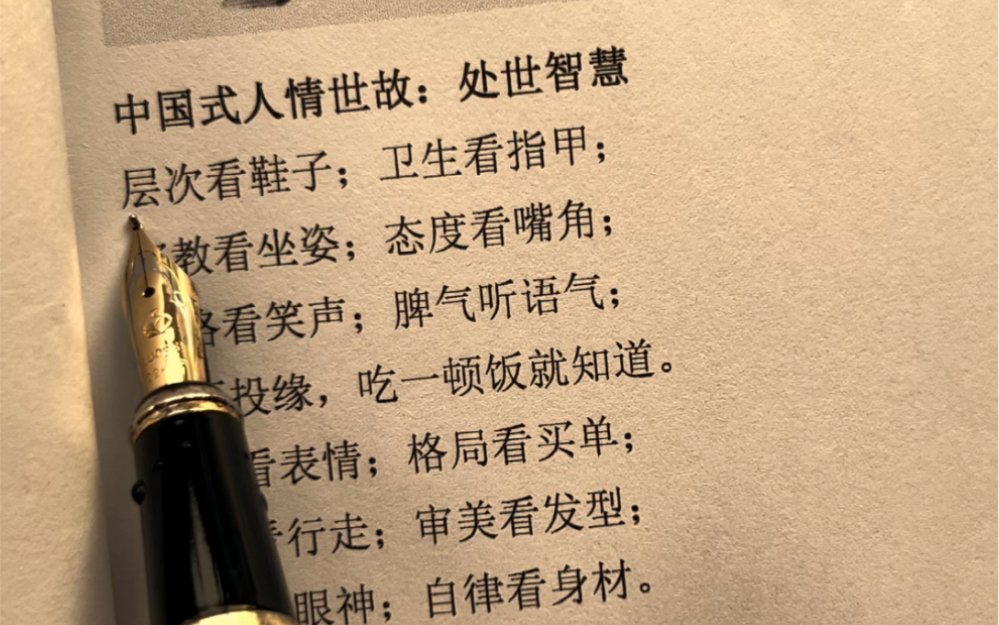 中国式人情世故：处世智慧
层次看鞋子；卫生看指甲；
教看坐姿；态度看嘴角；
看笑声；脾气听语气；
投缘，吃一顿饭就知道。
看表情；格局看买单；
行走；审美看发型；
眼神；自律看身材。